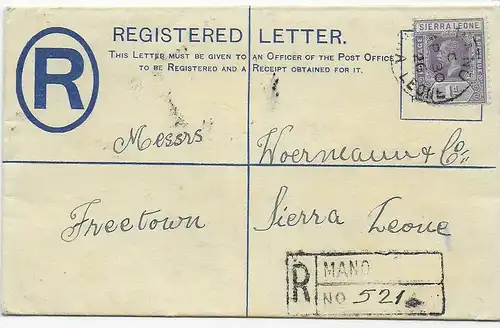 REGISTERED LETTER.
THIS LETTER MUST BE GIVEN TO AN OFFICER OF THE POST OFFICE
TO BE REGISTERED AND A RECEIPT OBTAINED FOR IT.
R
SIERRA LEONE
POSTAGE
A LEONE
Messrs Woermann & Co,
Freetown Sierra Leone
R MANO
NO 521